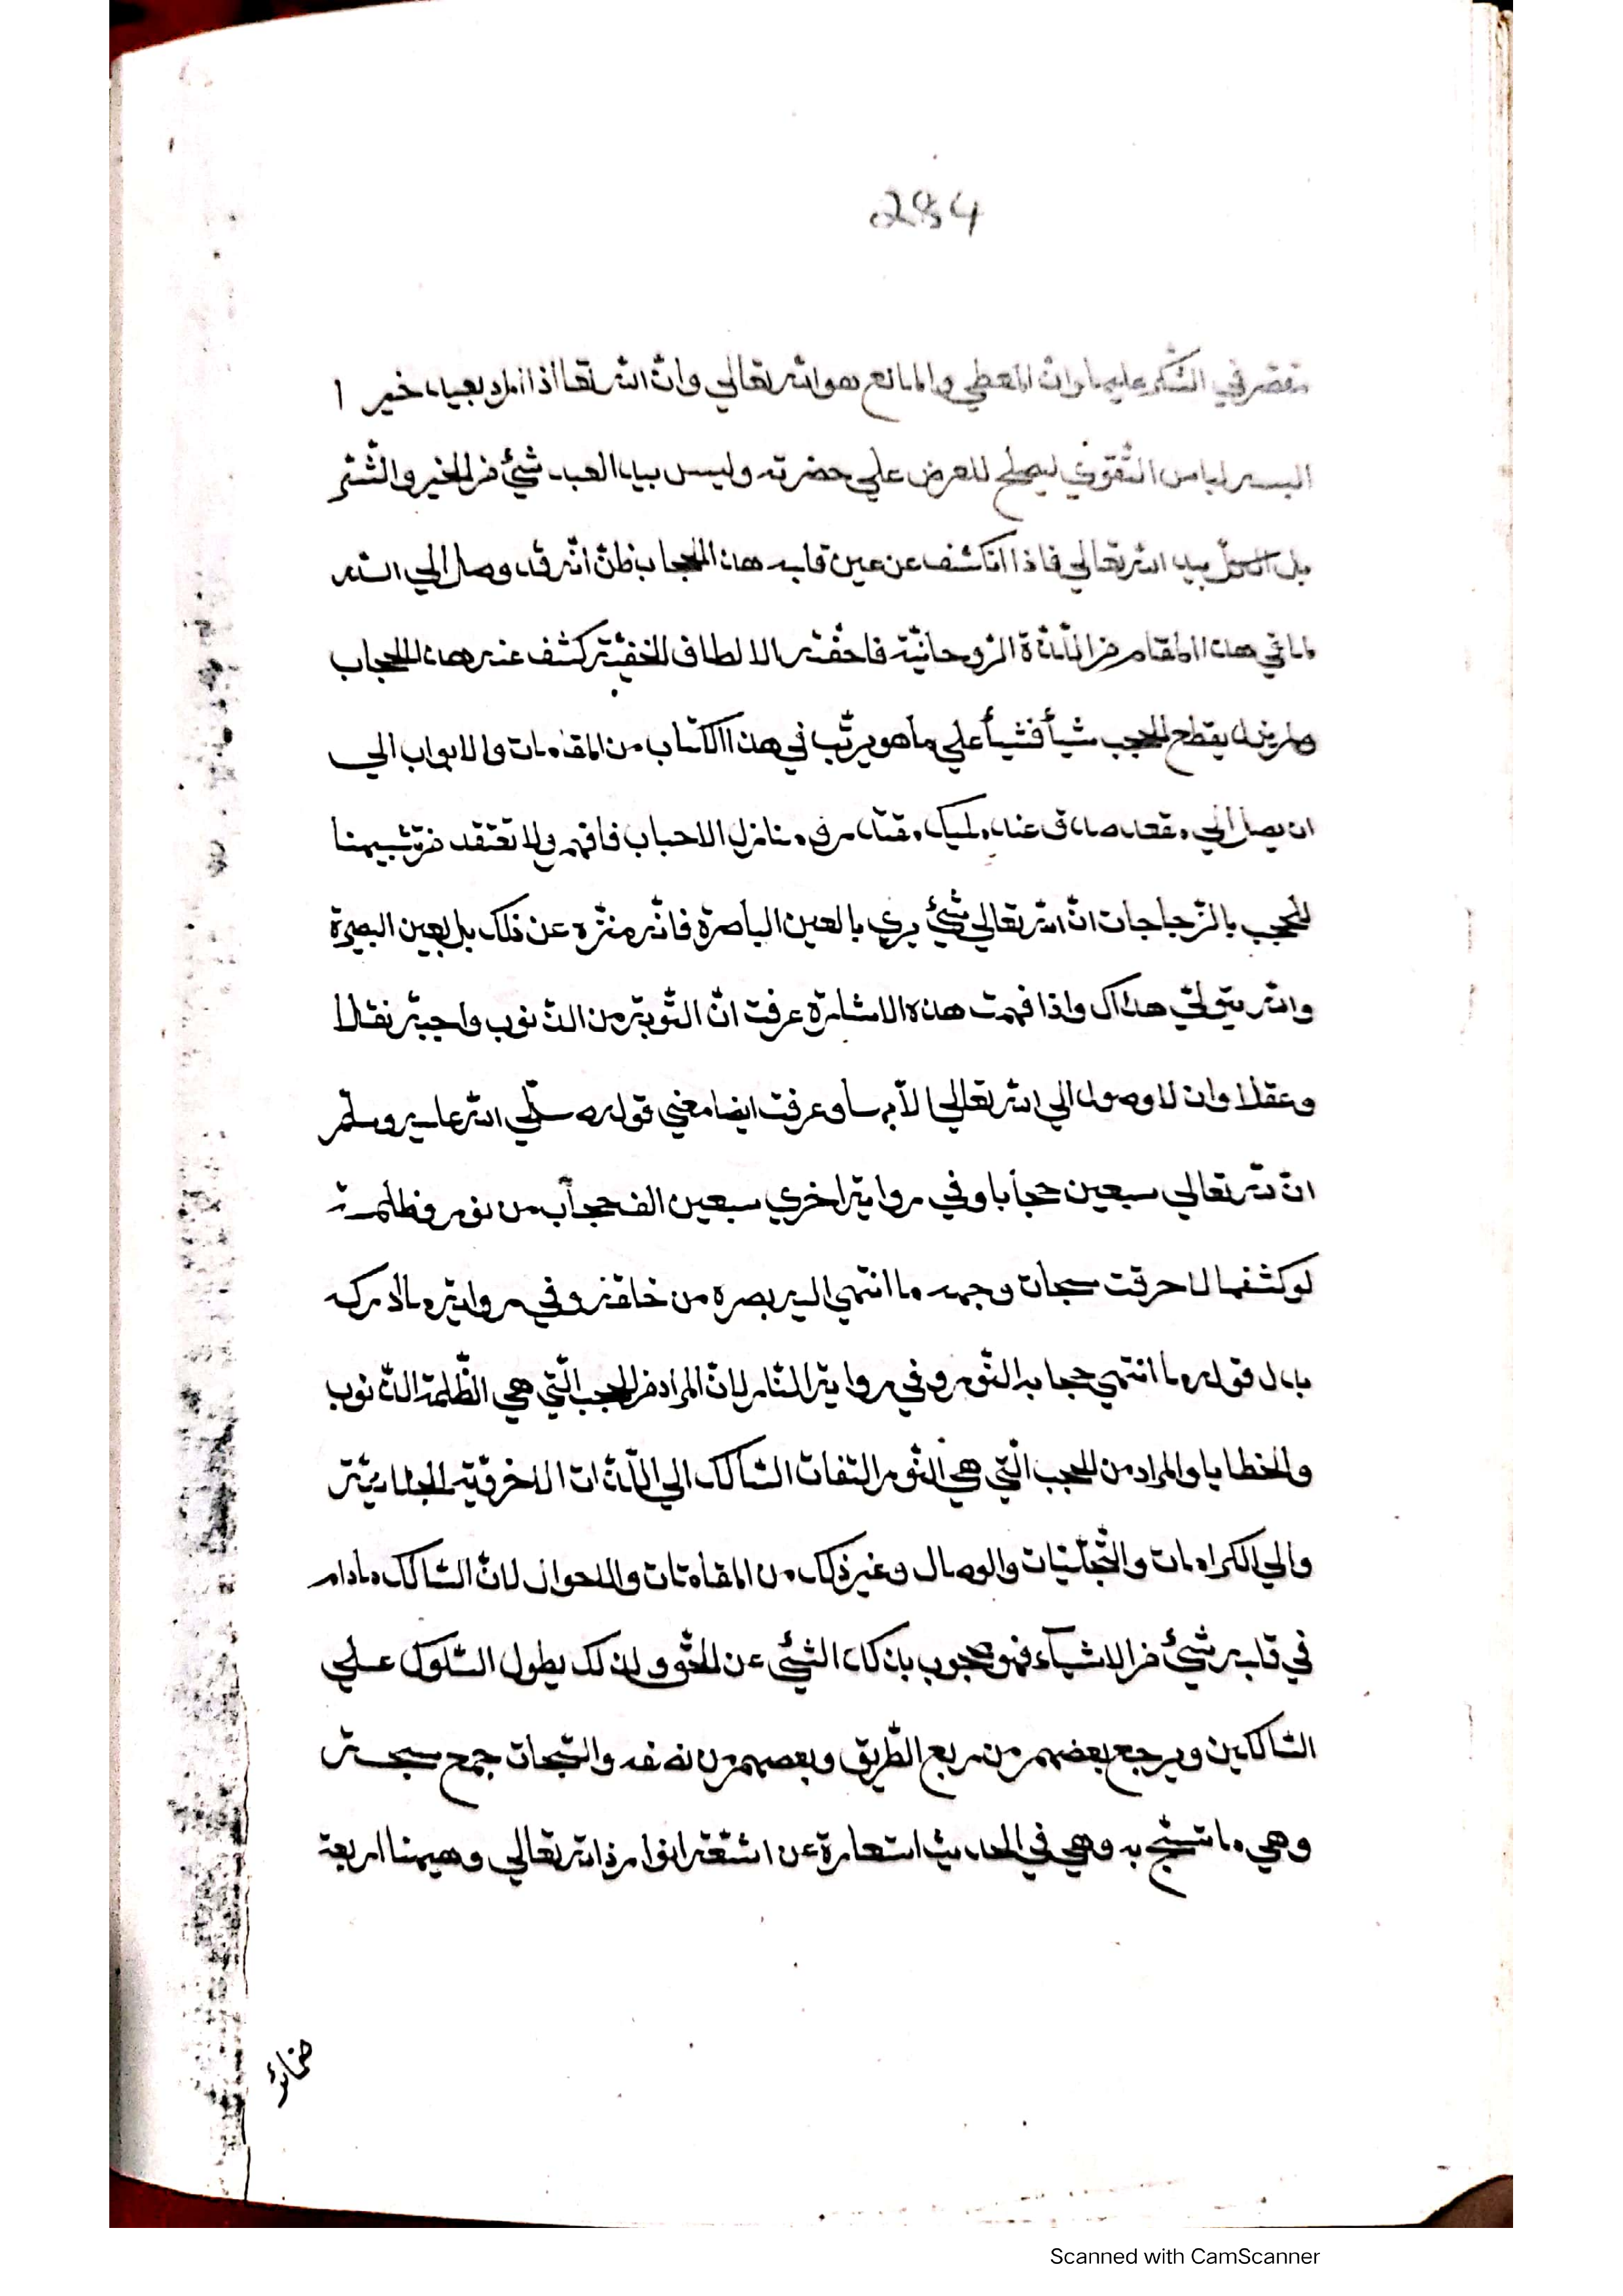 284
مقصر في الشكر عليها وان المعطي والمانع هو الله تعالي وانّ الله تعا اذا اراد بعبد خيرا
البسه لباس التّقوي ليصلح للعرض علي حضرته وليس بيد العبد شئ من الخير والشّر
بل الكلّ بيد الله تعالي فاذا انكشف عن عين قلبه هذا الحجاب ظنّ انّه قد وصل الي الله
لما في هذا المقام من اللّذّة الرّوحانيّة فاحفّته الالطاف الخفيّة كشف عنه هذا الحجاب
ولم يزل يقطع الحجب شيأ فشيأ علي ما هو مرتّب في هذا الكتاب من المقامات والابواب الي
ان يصل الي مقعد صدق عند مليك مقتدر في منازل الاحباب فافهم ولا تعتقد من تشبيهنا
الحجب بالزّجاجات انّ الله تعالي شئ يري بالعين الباصرة فانّه منزّه عن ذلك بل بعين البصيرة
والله يتولّي هداك واذا فهمت هذه الاشارة عرفت انّ التّوبة من الذّنوب واجبة نقلا
وعقلا وان لا وصول الي الله تعالي الّا بها وعرفت ايضا معني قوله صلّي الله عليه وسلّم
انّ لله تعالي سبعين حجابا وفي رواية اخري سبعين الف حجاب من نور وظلمة
لو كشفها لاحرقت سبحات وجهه ما انتهي اليه بصره من خلقه وفي رواية ما ادركه
بدل قوله ما انتهي حجابه النّور وفي رواية النّار لانّ المراد من الحجب الّتي هي الظّلمة الذّنوب
والخطايا والمراد من الحجب الّتي هي النّور التفات السّالك الي اللّذّات الاخرويّة الجنانيّة
والي الكرامات والتّجلّيات والوصال وغير ذلك من المقامات والاحوال لانّ السّالك مادام
في قلبه شئ من الاشياء فهو محجوب بذلك الشّئ عن الحقّ ولذلك يطول السّلوك علي
السّالكين ويرجع بعضهم من ربع الطّريق وبعضهم من نصفه والسّبحات جمع سبحة
وهي ما تسبّح به وهي في الحديث استعارة عن اشعّة انوار ذات الله تعالي وههنا اربعة
Scanned with CamScanner